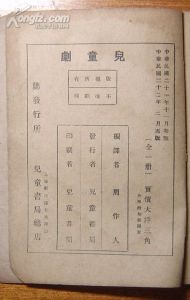 中華民國二十一年十一月初版
中華民國二十二年三月再版
兒童劇
版權所有
不准翻印
（全一册）實價大洋三角
編譯者 周作人
發行者 兒童書局
印刷者 兒童書局
總發行所 兒童書局總店